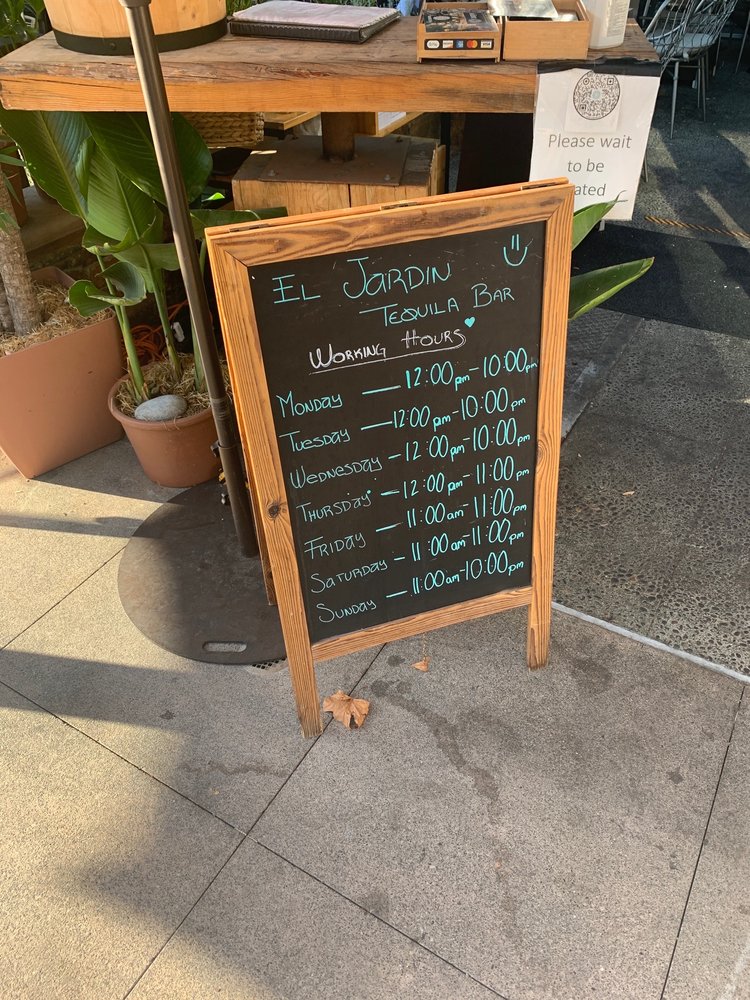 EL JARDIN
TEQUILA BAR
WORKING HOURS
MONDAY — 12:00pm-10:00pm
TUESDAY — 12:00pm-10:00pm
WEDNESDAY - 12:00pm-10:00pm
THURSDAY - 12:00pm-11:00pm
FRIDAY — 11:00am-11:00pm
SATURDAY - 11:00am-11:00pm
SUNDAY — 11:00am-10:00pm
Please wait
to be